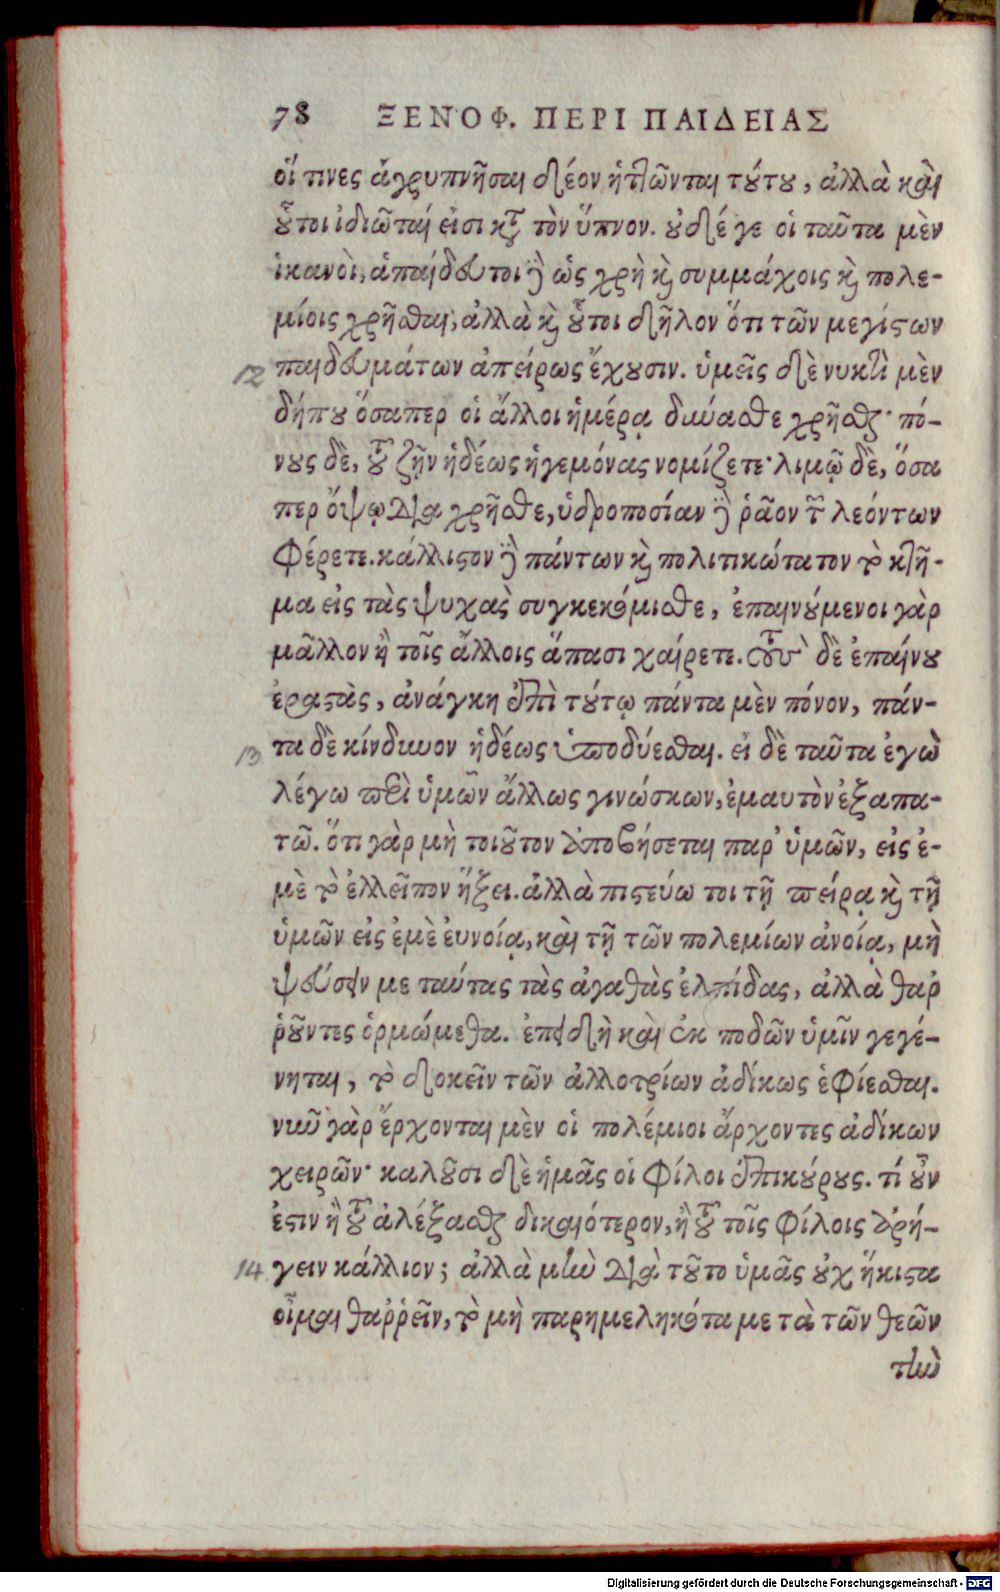 78 ΞΕΝΟΦ. ΠΕΡΙ ΠΑΙΔΕΙΑΣ
οἵ τινες ἀγρυπνῆσαι δέον ἡττῶνται τούτου, ἀλλὰ καὶ
οὗτοι ἰδιῶταί εἰσι κατὰ τὸν ὕπνον. οὐδέ γε οἱ ταῦτα μὲν
ἱκανοὶ, ἀπαίδευτοι δὲ ὡς χρὴ καὶ συμμάχοις καὶ πολε-
μίοις χρῆσθαι, ἀλλὰ καὶ οὗτοι δῆλον ὅτι τῶν μεγίστων
12 παιδευμάτων ἀπείρως ἔχουσιν. ὑμεῖς δὲ νυκτὶ μὲν
δήπου ὅσαπερ οἱ ἄλλοι ἡμέρᾳ δύναισθε χρῆσθαι· πό-
νους δὲ, τοῦ ζῇν ἡδέως ἡγεμόνας νομίζετε· λιμῷ δὲ, ὅσα
περ ὄψῳ διαχρῆσθε, ὑδροποσίαν δὲ ῥᾶον τῶν λεόντων
φέρετε. κάλλιστον δὲ πάντων καὶ πολιτικώτατον τὸ κτῆ-
μα εἰς τὰς ψυχὰς συγκεκόμισθε, ἐπαινούμενοι γὰρ
μᾶλλον ἢ τοῖς ἄλλοις ἅπασι χαίρετε. τοὺς δὲ ἐπαίνου
ἐραστὰς, ἀνάγκη ἐπὶ τούτῳ πάντα μὲν πόνον, πάν-
13 τα δὲ κίνδυνον ἡδέως ὑποδύεσθαι. εἰ δὲ ταῦτα ἐγὼ
λέγω περὶ ὑμῶν ἄλλως γινώσκων, ἐμαυτὸν ἐξαπα-
τῶ. ὅτι γὰρ μὴ τοιοῦτον ἀποβήσεται παρ’ ὑμῶν, εἰς ἐ-
μὲ τὸ ἐλλεῖπον ἥξει. ἀλλὰ πιστεύω τοι τῇ πείρᾳ καὶ τῇ
ὑμῶν εἰς ἐμὲ ἐυνοίᾳ, καὶ τῇ τῶν πολεμίων ἀνοίᾳ, μὴ
ψεύσειν με ταύτας τὰς ἀγαθὰς ἐλπίδας, ἀλλὰ θαρ
ῥοῦντες ὁρμώμεθα. ἐπειδὴ καὶ ἐκ ποδῶν ὑμῖν γεγέ-
νηται, τὸ δοκεῖν τῶν ἀλλοτρίων ἀδίκως ἐφίεσθαι.
νῦν γὰρ ἔρχονται μὲν οἱ πολέμιοι ἄρχοντες ἀδίκων
χειρῶν· καλοῦσι δὲ ἡμᾶς οἱ φίλοι ἐπικούρους. τί οὖν
ἐστιν ἢ τοῦ ἀλέξασθαι δικαιότερον, ἢ τοῦ τοῖς φίλοις ἀρή-
14 γειν κάλλιον; ἀλλὰ μὴν διὰ τοῦτο ὑμᾶς οὐχ ἥκιστα
οἶμαι θαῤῥεῖν, τὸ μὴ παρημεληκότα με τὰ τῶν θεῶν
τὴν
Digitalisierung gefördert durch die Deutsche Forschungsgemeinschaft - DFG